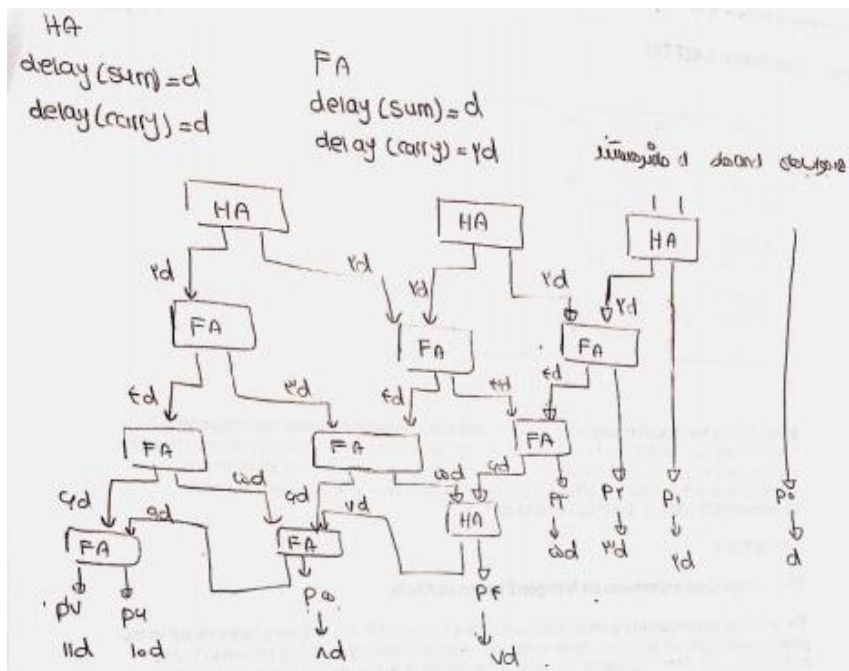 HA
delay (sum) = d
delay (carry) = d
FA
delay (sum) = d
delay (carry) = ۲d
HA HA HA
۲d ۲d ۲d ۲d ۲d
FA FA FA
۴d ۳d ۴d ۴d
FA FA FA
۶d ۵d ۶d ۵d ۶d
۹d ۷d
FA FA HA
P۳ P۲ P۱ P۰
۵d ۳d ۲d d
P۷ P۶ P۵ P۴
۱۱d ۱۰d ۸d ۷d